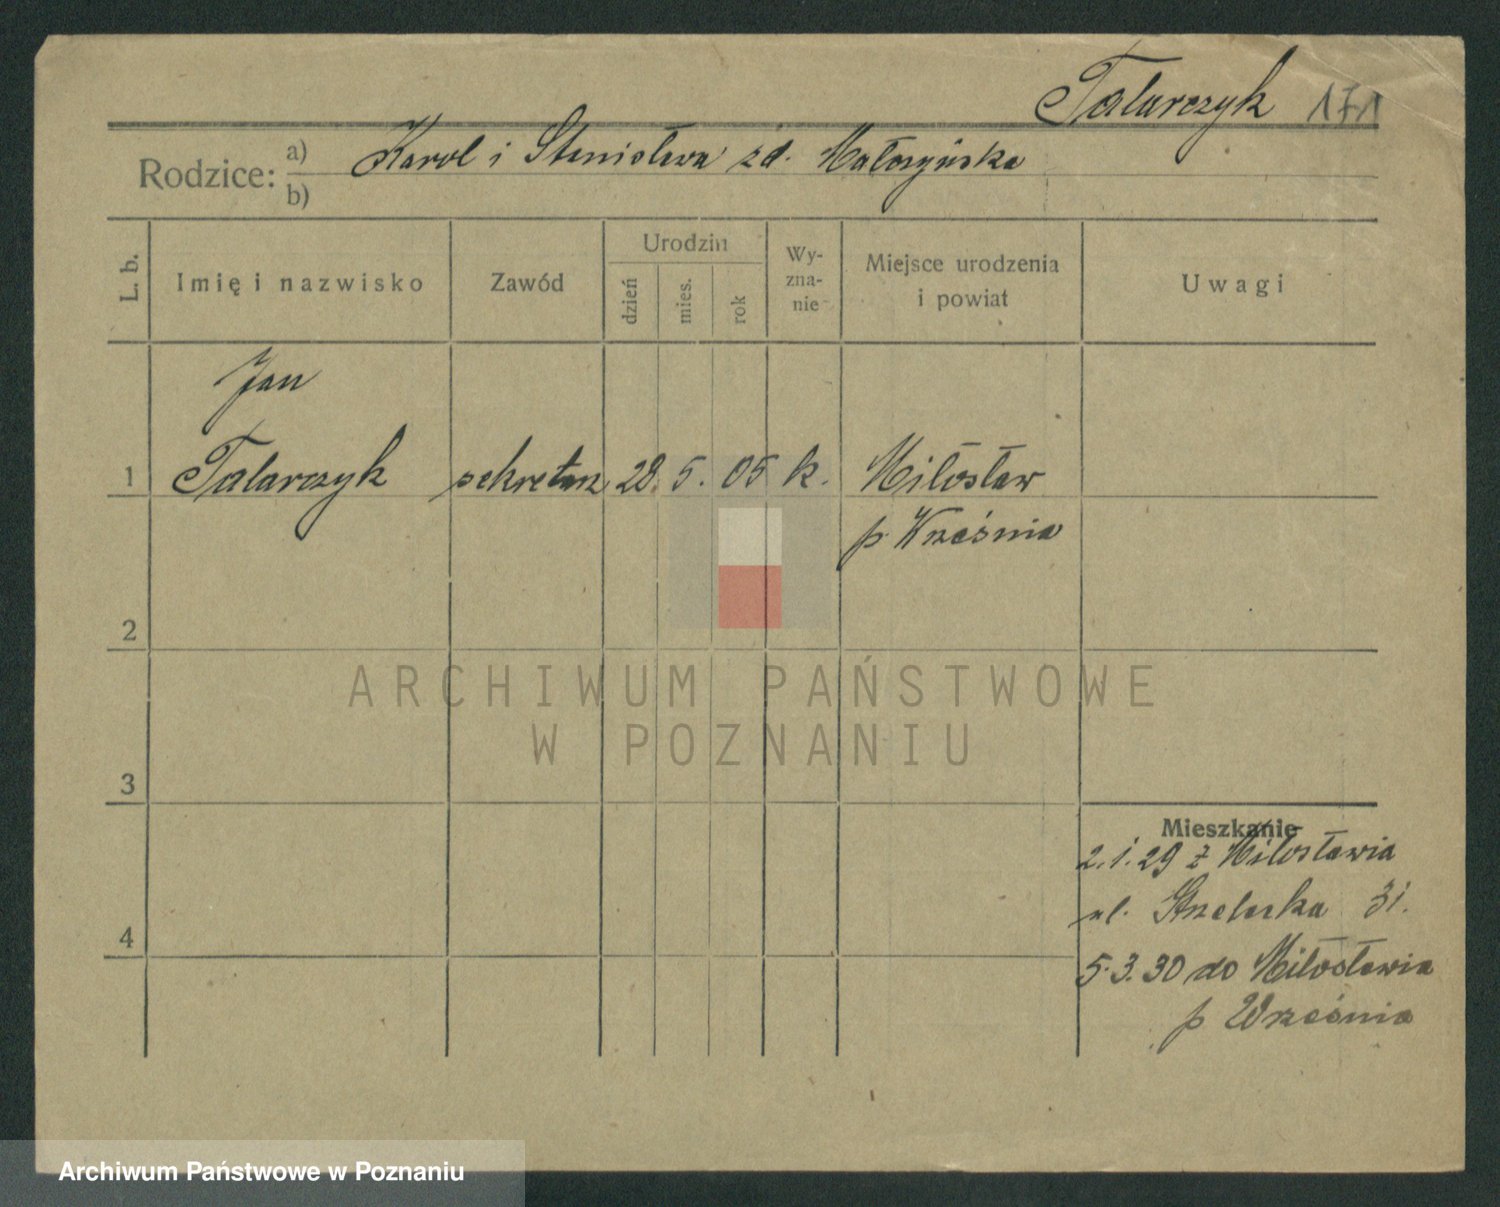 Talarczyk 171
Rodzice: a) Karol i Stanisława zd. Małoszyńska
b)
L. b.
Imię i nazwisko
Zawód
Urodzin
dzień
mies.
rok
Wy-
zna-
nie
Miejsce urodzenia
i powiat
Uwagi
Jan
1 Talarczyk sekretarz 28. 5. 05 k. Miłosław
p. Września
2
ARCHIWUM PAŃSTWOWE
W POZNANIU
3
Mieszkanie
2.1.29 z Miłosławia
ul. Strzelecka 31.
4
5.3.30 do Miłosławia
p Września
Archiwum Państwowe w Poznaniu